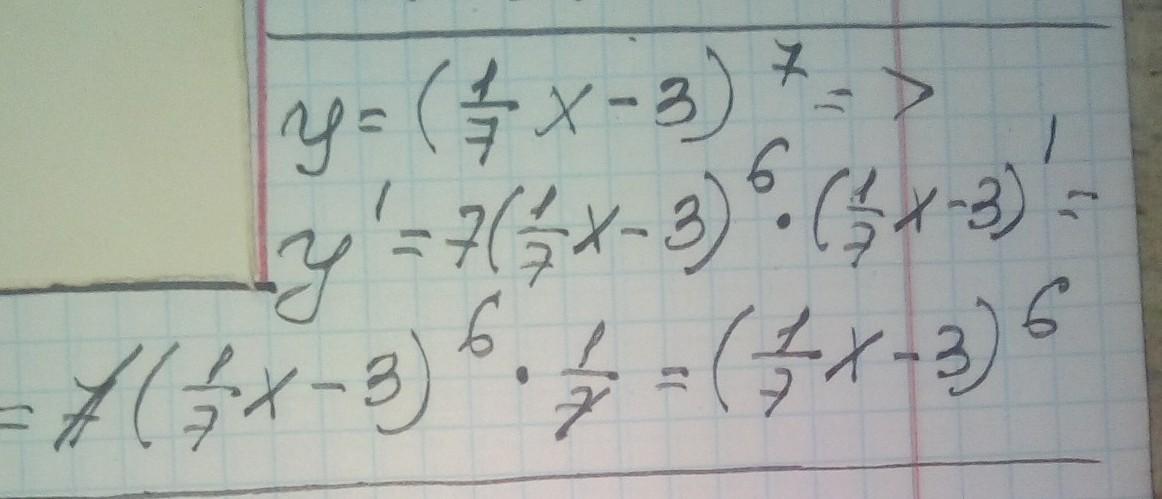 y = (1/7 x - 3)^7 = >
y' = 7(1/7 x - 3)^6 · (1/7 x - 3)' =
= 7(1/7 x - 3)^6 · 1/7 = (1/7 x - 3)^6